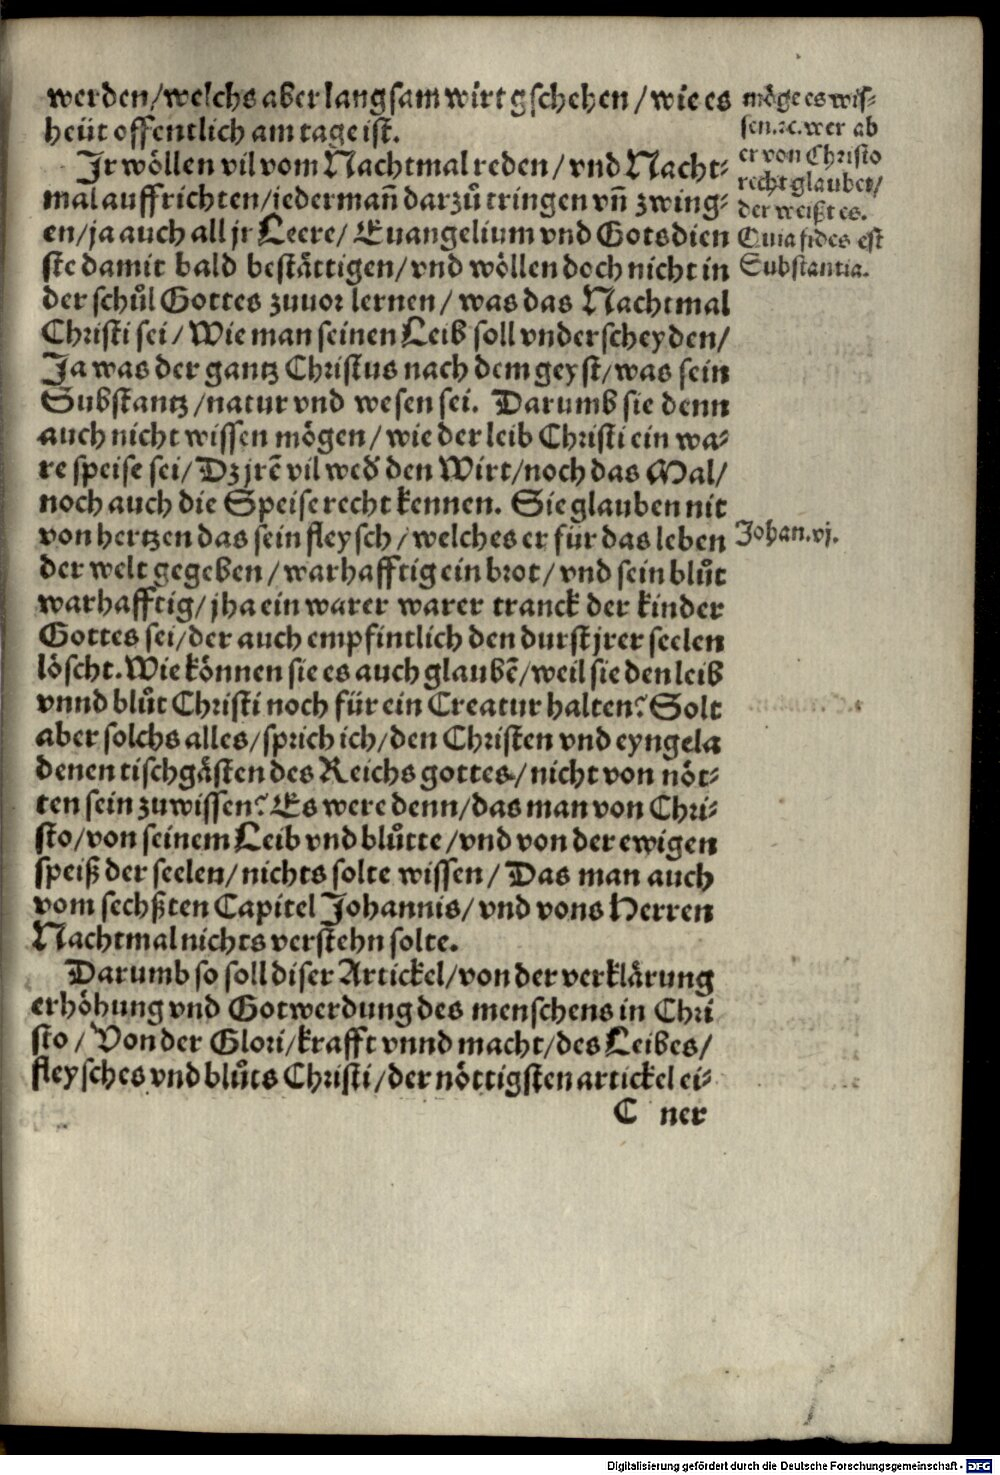 werden/welchs aber langsam wirt gschehen/wie es
heüt offentlich am tage ist.
Jr wöllen vil vom Nachtmal reden/vnd Nacht⸗
mal auffrichten/iederman̄ darzů tringen vn̄ zwing⸗
en/ja auch all jr Leere/Euangelium vnd Gotsdien
ste damit bald bestättigen/vnd wöllen doch nicht in
der schůl Gottes zuuor lernen/was das Nachtmal
Christi sei/Wie man seinen Leib soll vnderscheyden/
Ja was der gantz Christus nach dem geyst/was sein
Substantz/natur vnd wesen sei. Darumb sie denn
auch nicht wissen mögen/wie der leib Christi ein wa⸗
re speise sei/Dz jrē vil wed̕ den Wirt/noch das Mal/
noch auch die Speise recht kennen. Sie glauben nit
von hertzen das sein fleysch/welches er für das leben
der welt gegeben/warhafftig ein brot/vnd sein blůt
warhafftig/jha ein warer warer tranck der kinder
Gottes sei/der auch empfintlich den durst jrer seelen
löscht. Wie können sie es auch glaubē/weil sie den leib
vnnd blůt Christi noch für ein Creatur halten? Solt
aber solchs alles/sprich ich/den Christen vnd eyngela
denen tischgästen des Reichs gottes/nicht von nöt⸗
ten sein zuwissen? Es were denn/das man von Chri⸗
sto/von seinem Leib vnd blůtte/vnd von der ewigen
speiß der seelen/nichts solte wissen/Das man auch
vom sechßten Capitel Johannis/vnd vons Herren
Nachtmal nichts verstehn solte.
Darumb so soll diser Artickel/von der verklärung
erhöhung vnd Gotwerdung des menschens in Chri
sto/Von der Glori/krafft vnnd macht/des Leibes/
fleysches vnd blůts Christi/der nöttigsten artickel ei⸗
C ner
möge es wis⸗
sen.ꝛc. wer ab
er von Christo
recht glaubet/
der weißt es.
Quia fides est
Substantia.
Johan.vj.
Digitalisierung gefördert durch die Deutsche Forschungsgemeinschaft - DFG